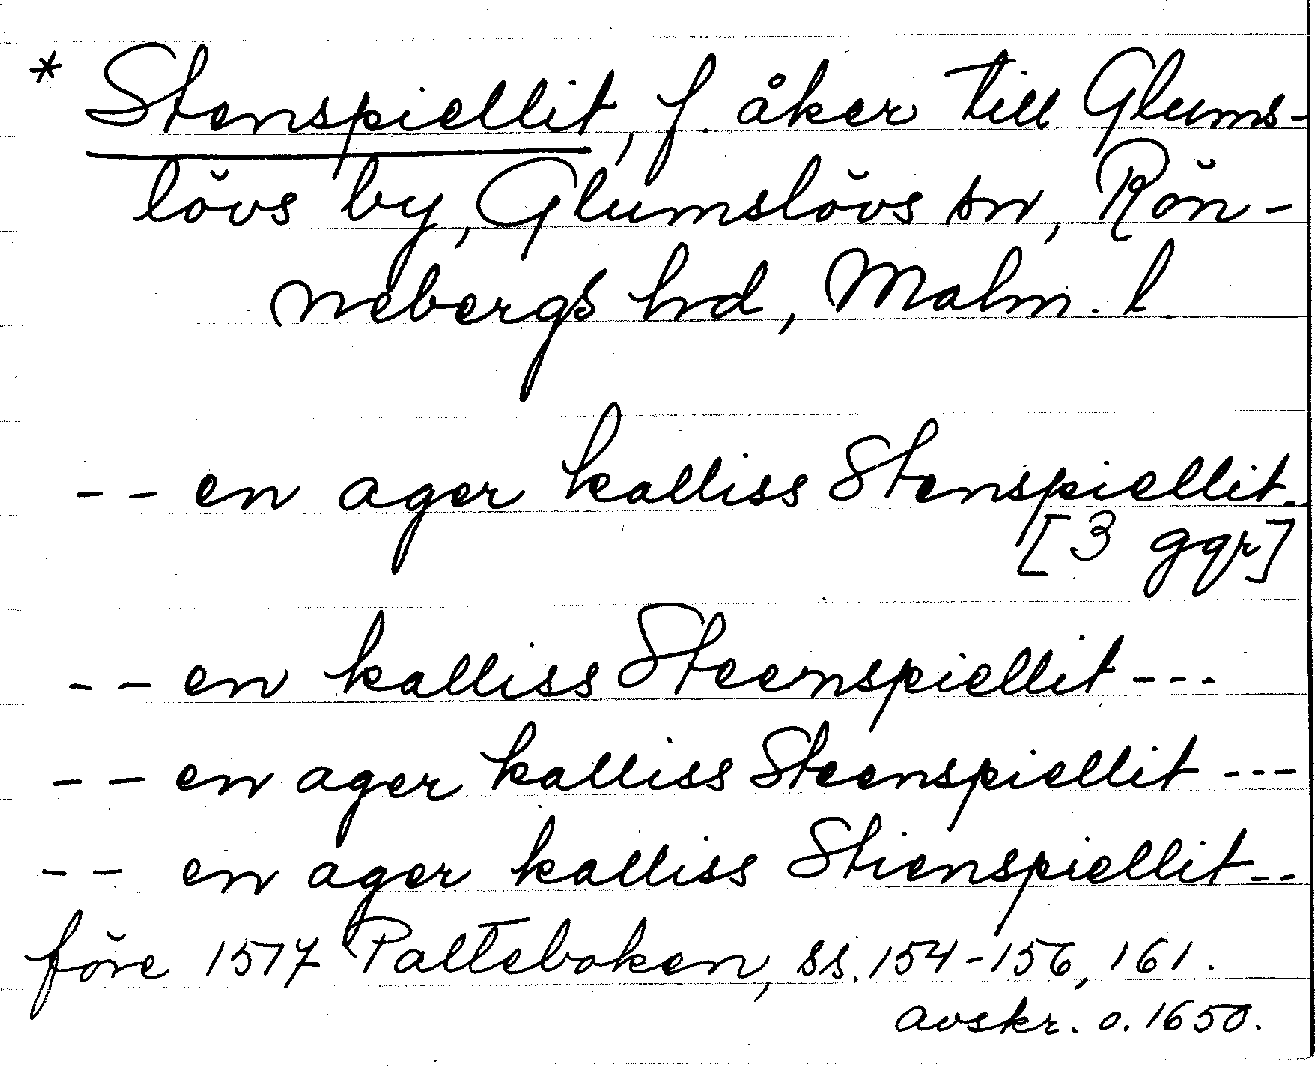 * Stenspiellit, f. åker till Glums-
lövs by, Glumslövs sn, Rön-
nebergs hd, Malm. l.
-- en ager kalliss Stenspiellit.
[3 ggr]
-- en kalliss Steenspiellit ---
-- en ager kalliss Steenspiellit ---
-- en ager kalliss Stienspiellit --
före 1517 Palteboken, ss. 154-156, 161.
avskr. o. 1650.